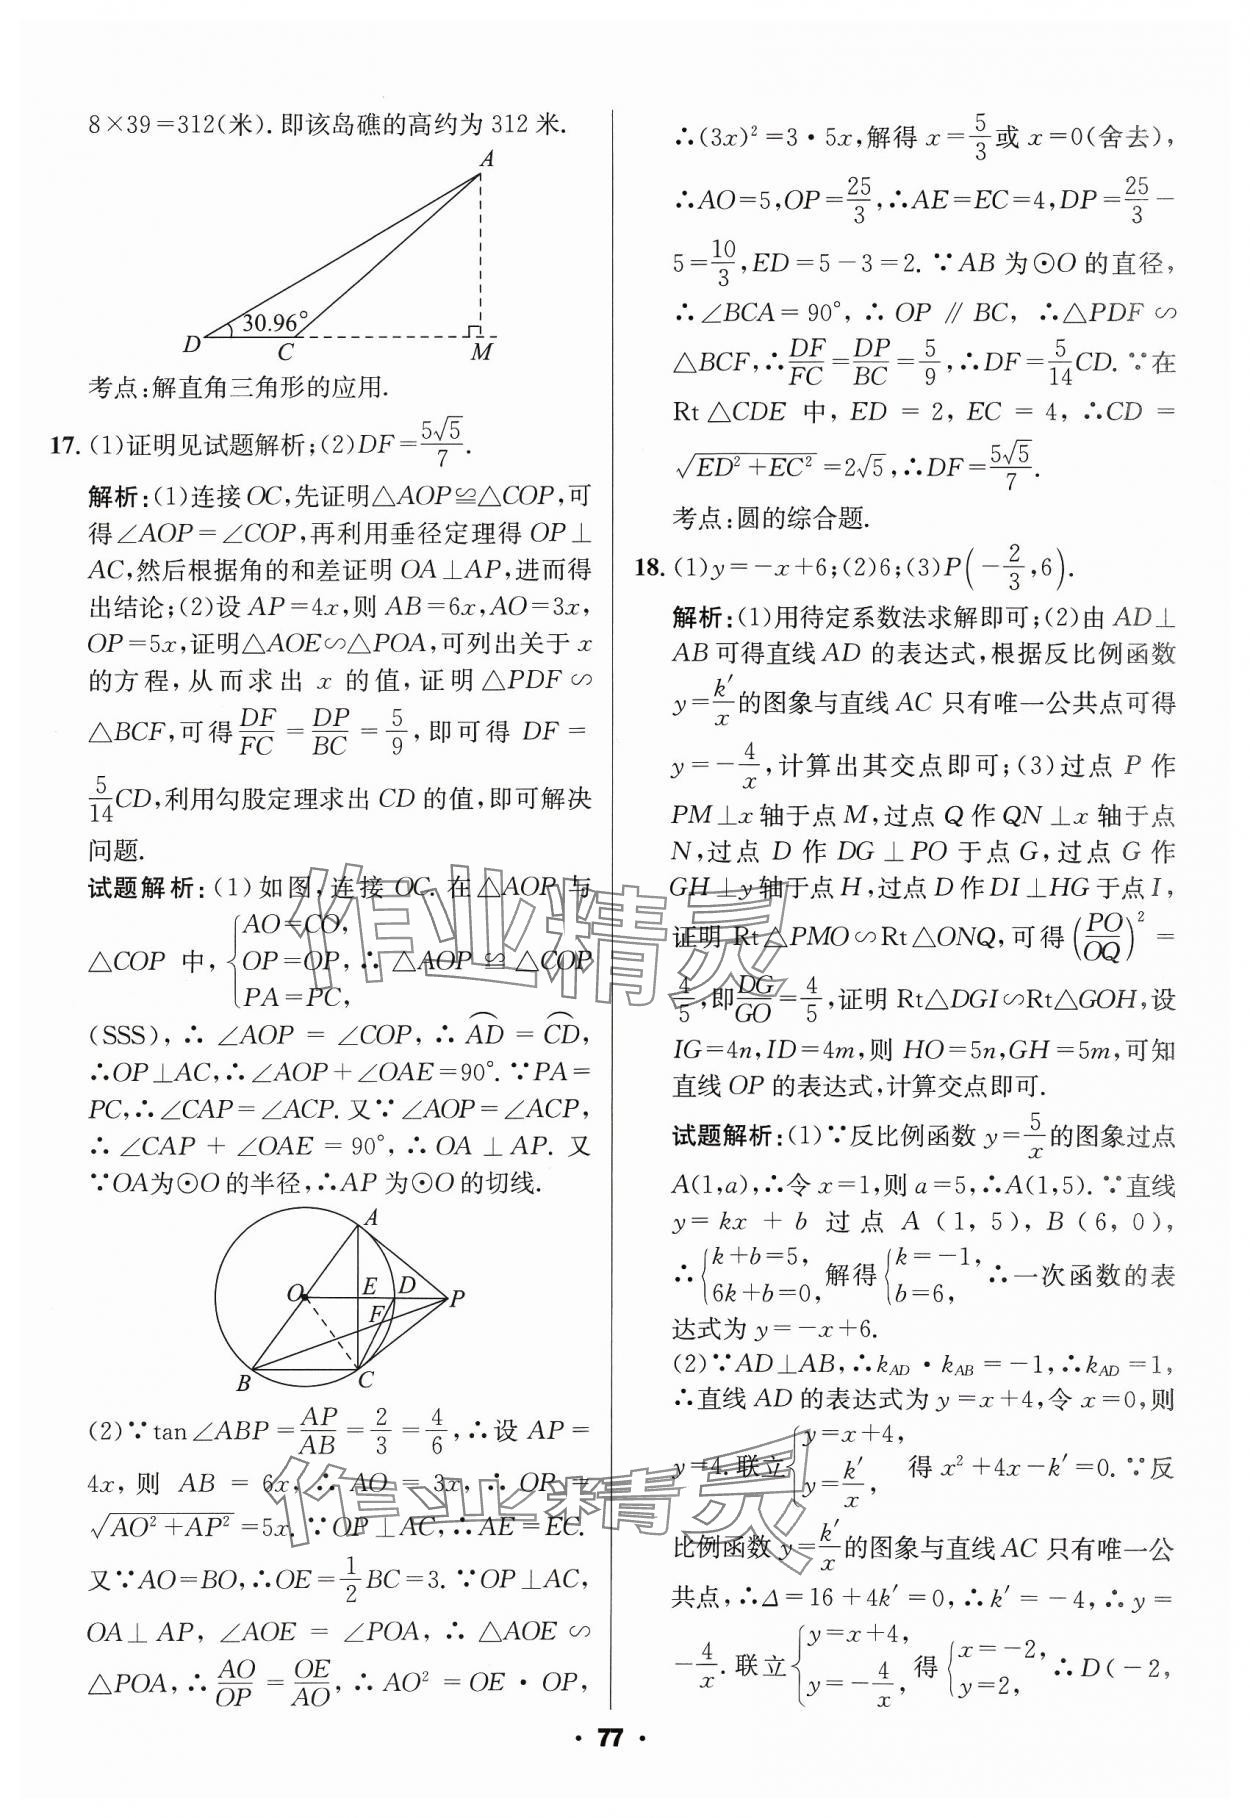 8×39=312(米).即该岛礁的高约为312米.
A
30.96°
D C M
考点:解直角三角形的应用.
17.(1)证明见试题解析;(2)DF=5√5/7.
解析:(1)连接OC,先证明△AOP≌△COP,可
得∠AOP=∠COP,再利用垂径定理得OP⊥
AC,然后根据角的和差证明OA⊥AP,进而得
出结论;(2)设AP=4x,则AB=6x,AO=3x,
OP=5x,证明△AOE∽△POA,可列出关于x
的方程,从而求出x的值,证明△PDF∽
△BCF,可得DF/FC=DP/BC=5/9,即可得DF=
5/14CD,利用勾股定理求出CD的值,即可解决
问题.
试题解析:(1)如图,连接OC.在△AOP与
△COP中,{AO=CO,
OP=OP,∴△AOP≌△COP
PA=PC,
(SSS),∴∠AOP=∠COP,∴⌒AD=⌒CD,
∴OP⊥AC,∴∠AOP+∠OAE=90°.∵PA=
PC,∴∠CAP=∠ACP.又∵∠AOP=∠ACP,
∴∠CAP+∠OAE=90°,∴OA⊥AP.又
∵OA为⊙O的半径,∴AP为⊙O的切线.
A
O E D P
F
B C
(2)∵tan∠ABP=AP/AB=2/3=4/6,∴设AP=
4x,则AB=6x,∴AO=3x,∴OP=
√(AO²+AP²)=5x.∵OP⊥AC,∴AE=EC.
又∵AO=BO,∴OE=1/2BC=3.∵OP⊥AC,
OA⊥AP,∠AOE=∠POA,∴△AOE∽
△POA,∴AO/OP=OE/AO,∴AO²=OE·OP,
∴(3x)²=3·5x,解得x=5/3或x=0(舍去),
∴AO=5,OP=25/3,∴AE=EC=4,DP=25/3-
5=10/3,ED=5-3=2.∵AB为⊙O的直径,
∴∠BCA=90°,∴OP∥BC,∴△PDF∽
△BCF,∴DF/FC=DP/BC=5/9,∴DF=5/14CD.∵在
Rt△CDE中,ED=2,EC=4,∴CD=
√(ED²+EC²)=2√5,∴DF=5√5/7.
考点:圆的综合题.
18.(1)y=-x+6;(2)6;(3)P(-2/3,6).
解析:(1)用待定系数法求解即可;(2)由AD⊥
AB可得直线AD的表达式,根据反比例函数
y=k′/x的图象与直线AC只有唯一公共点可得
y=-4/x,计算出其交点即可;(3)过点P作
PM⊥x轴于点M,过点Q作QN⊥x轴于点
N,过点D作DG⊥PO于点G,过点G作
GH⊥y轴于点H,过点D作DI⊥HG于点I,
证明Rt△PMO∽Rt△ONQ,可得(PO/OQ)²=
4/5,即DG/GO=4/5,证明Rt△DGI∽Rt△GOH,设
IG=4n,ID=4m,则HO=5n,GH=5m,可知
直线OP的表达式,计算交点即可.
试题解析:(1)∵反比例函数y=5/x的图象过点
A(1,a),∴令x=1,则a=5,∴A(1,5).∵直线
y=kx+b过点A(1,5),B(6,0),
∴{k+b=5, 6k+b=0,解得{k=-1, b=6,∴一次函数的表
达式为y=-x+6.
(2)∵AD⊥AB,∴k_AD·k_AB=-1,∴k_AD=1,
∴直线AD的表达式为y=x+4,令x=0,则
y=4.联立{y=x+4, y=k′/x,得x²+4x-k′=0.∵反
比例函数y=k′/x的图象与直线AC只有唯一公
共点,∴Δ=16+4k′=0,∴k′=-4,∴y=
-4/x.联立{y=x+4, y=-4/x,得{x=-2, y=2,∴D(-2,
· 77 ·
作业精灵
作业精灵